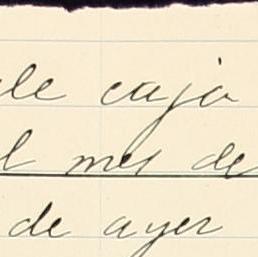 de caja
l mes de
de ayer